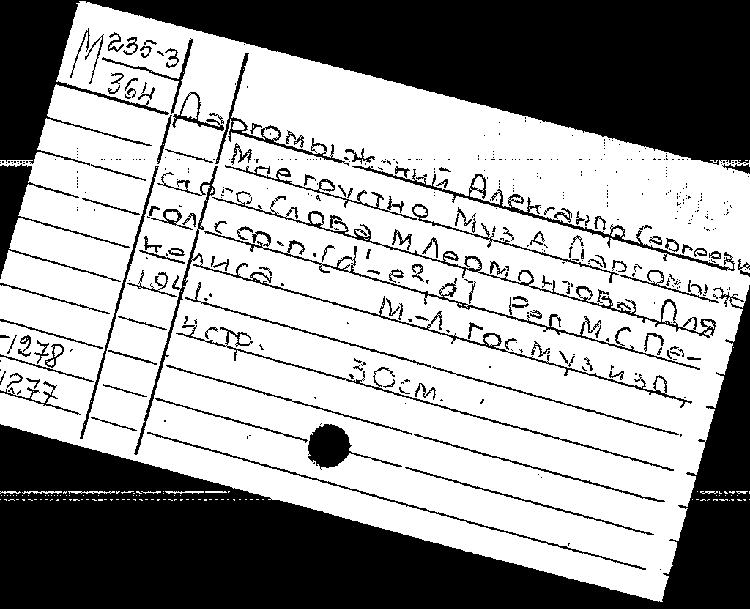 М 235-3
364
Даргомыжский, Александр Сергееви
Мне грустно. Муз А Даргомыж-
ского. Слова М. Лермонтова. Для
гол. с ф-п. [d'-e², d] Ред М.С. Пе-
келиса. М.-Л., Гос. муз. изд,
1941.
4 стр. 30 см.
1278
1277